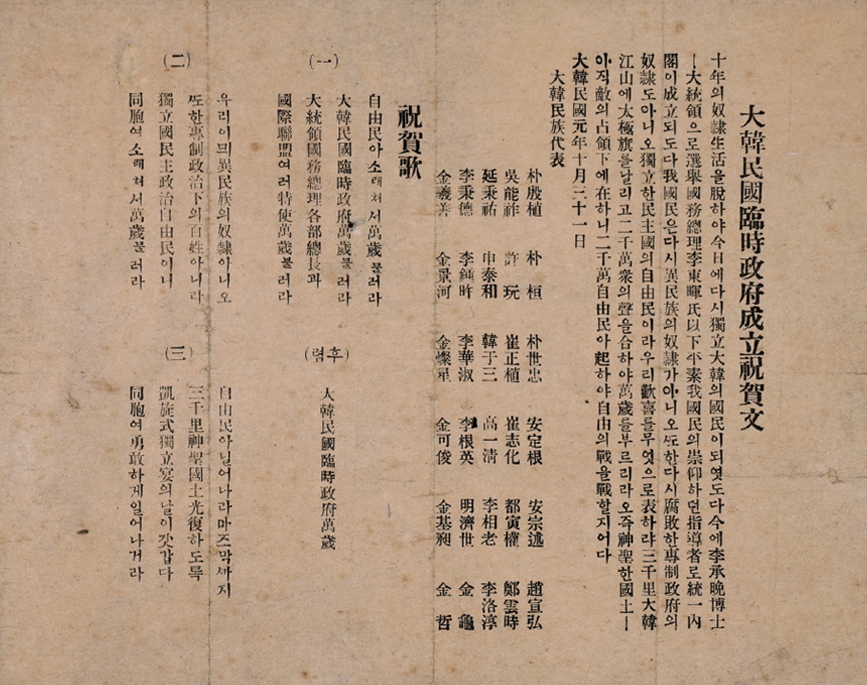 大韓民國臨時政府成立祝賀文
十年의奴隷生活을脫하야今日에다시獨立大韓의國民이되엿도다今에李承晩博士
ㅣ大統領으로選擧國務總理李東暉氏以下平素我國民의崇仰하던指導者로統一內
閣이成立되도다我國民은다시異民族의奴隷가아니오ᄯᅩ한다시腐敗한專制政府의
奴隷도아니오獨立한民主國의自由民이라우리歡喜를무엇으로表하랴三千里大韓
江山에太極旗를날리고二千萬衆의聲을合하야萬歲를부르리라오즉神聖한國土ㅣ
아직敵의占領下에在하니二千萬自由民아起하야自由의戰을戰할지어다
大韓民國元年十月三十一日
大韓民族代表
朴殷植 朴桓 朴世忠 安定根 安宗述 趙宣弘
吳能祚 許玩 崔正植 崔志化 都寅權 鄭雲時
延秉祐 申泰和 韓于三 高一淸 李相老 李洛淳
李秉德 李純昨 李華淑 李根英 明濟世 金龜
金羲善 金景河 金燦星 金可俊 金基昶 金哲
祝賀歌
(一)
自由民아소래쳐서萬歲불러라
大韓民國臨時政府萬歲불러라
大統領國務總理各部總長과
國際聯盟여러特使萬歲불러라
(후렴)
大韓民國臨時政府萬歲
(二)
우리이믜異民族의奴隷아니오
ᄯᅩ한專制政治下의百姓아니라
獨立國民主政治自由民이니
同胞여소래쳐서萬歲불러라
(三)
自由民아닐어나라마즈막ᄭᅡ지
三千里神聖國土光復하도록
凱旋式獨立宴의날이갓갑다
同胞여勇敢하게일어나거라